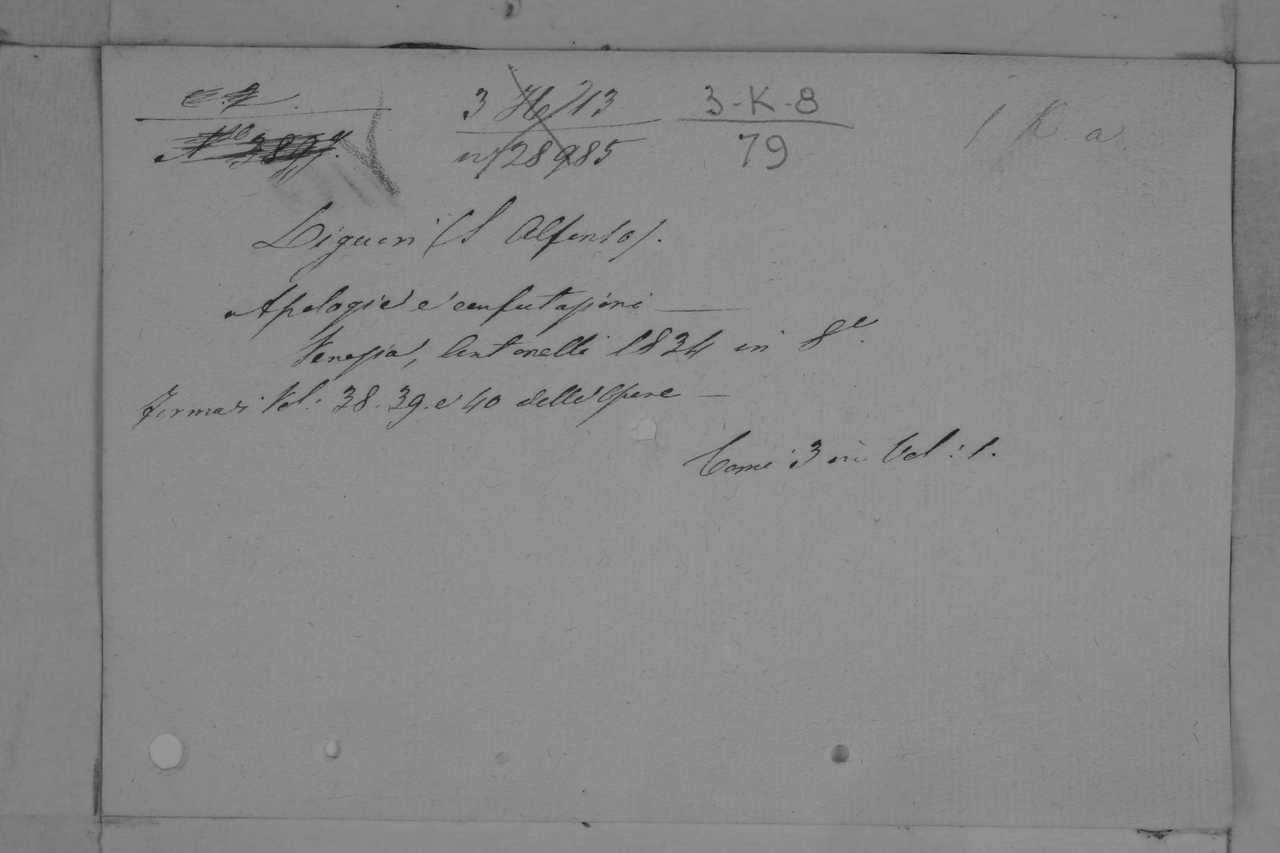 3 H/13
3-K-8
1 K a
n/28985
79
Liguori (S Alfonso).
Apologie e confutazioni —
Venezia, Antonelli 1834 in 8º.
Forma i Vol: 38. 39. e 40 delle Opere —
Tomi 3 in Vol: 1.